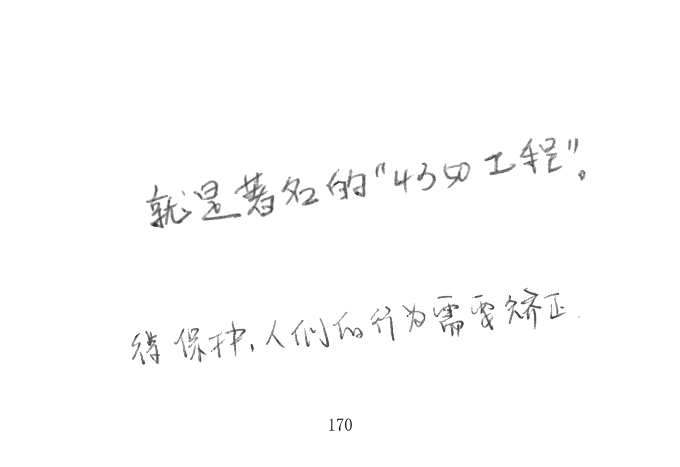 就是著名的“4350工程”。
得保护,人们的行为需要矫正.
170